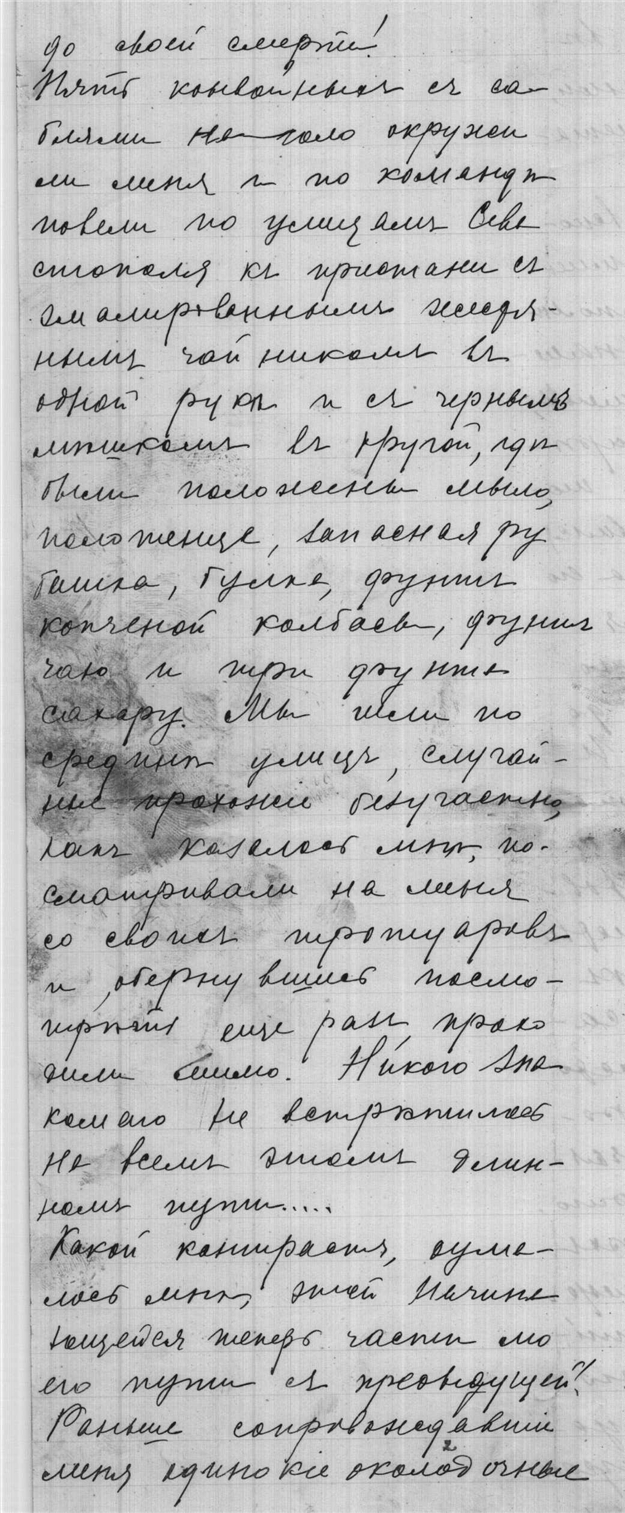 до своей смерти!
Пять конвойныхъ съ са-
блями наголо окружи
ли меня и по командѣ
повели по улицамъ Сева
стополя къ пристани съ
эмалированнымъ жестя-
нымъ чайникомъ въ
одной рукѣ и съ чернымъ
мѣшкомъ въ другой, гдѣ
были положены мыло,
полотенце, запасная ру
башка, булка, фунтъ
копченой колбасы, фунтъ
чаю и три фунта
сахару. Мы шли по
срединѣ улицъ, случай-
ные прохожіе безучастно,
какъ казалось мнѣ, по-
сматривали на меня
со своихъ тротуаровъ
и, обернувшись посмо-
трѣть еще разъ, прохо
дили мимо. Никого зна
комаго не встрѣтилось
на всемъ этомъ длин-
номъ пути.....
Какой контрастъ, дума-
лось мнѣ, этой начина
ющейся теперь части мо
его пути съ предыдущей!
Раньше сопровождавшіе
меня одинокіе околодочные